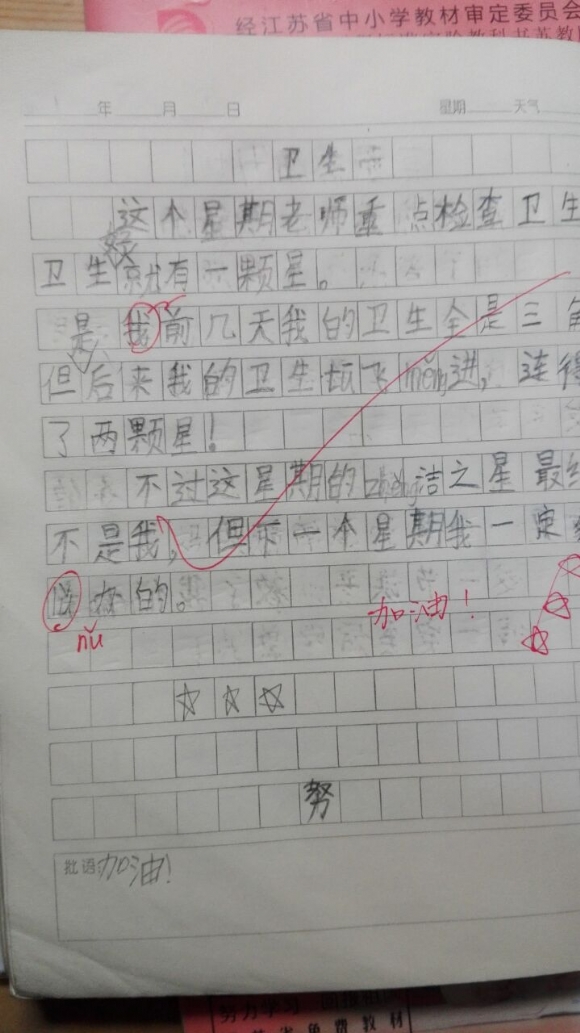 经江苏省中小学教材审定委员会
年 月 日 星期 天气
卫生
这个星期老师重点检查卫生
卫生就有一颗星。
是我前几天我的卫生全是三角
但后来我的卫生 飞 měng进，连得
了两颗星！
不过这星期的 洁之星最终
不是我，但下一个星期我一定
的。
加油！
nǔ
☆☆☆
努
批语：加油！
努力学习
省免费教材